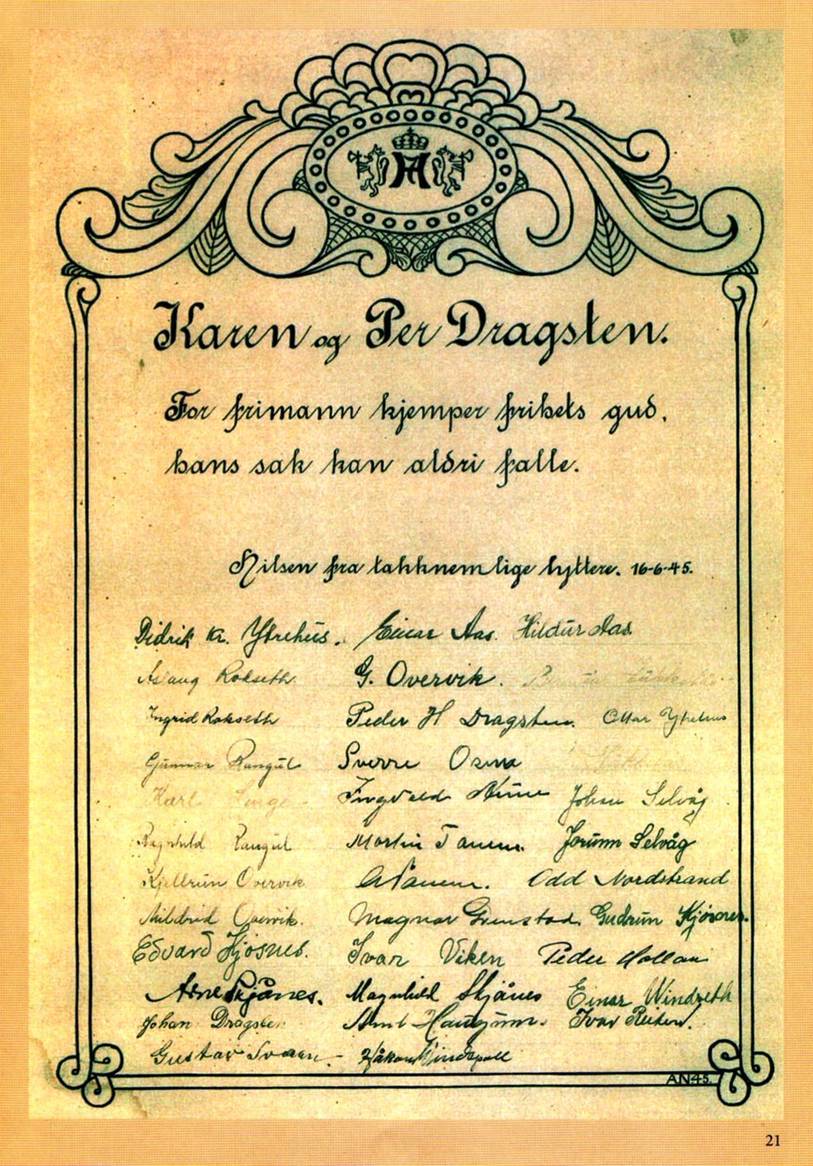 Karen og Per Dragsten.
For frimann kjemper frihets gud,
hans sak kan aldri falle.
Hilsen fra takknemlige lyttere. 16-6-45.
Didrik Kr. Ytrehus. Einar Aas. Hildur Aas
Aslaug Rokseth G. Overvik.
Ingrid Rokseth Peder H Dragsten. Ottar Ytrehus
Gunnar Rangul Sverre
Karl Ingvald Johan Selvåg
Ragnhild Rangul Martin Tanem. Jorunn Selvåg
Kjellrun Overvik Odd Nordstrand
Mildrid Overvik. Magnar Grenstad. Gudrun Kjøsnes.
Edvard Kjøsnes. Ivar Viken Peder
Arne Skjånes. Magnhild Skjånes Einar
Johan Dragsten Ivar
Gustav Håkon
AN45.
21